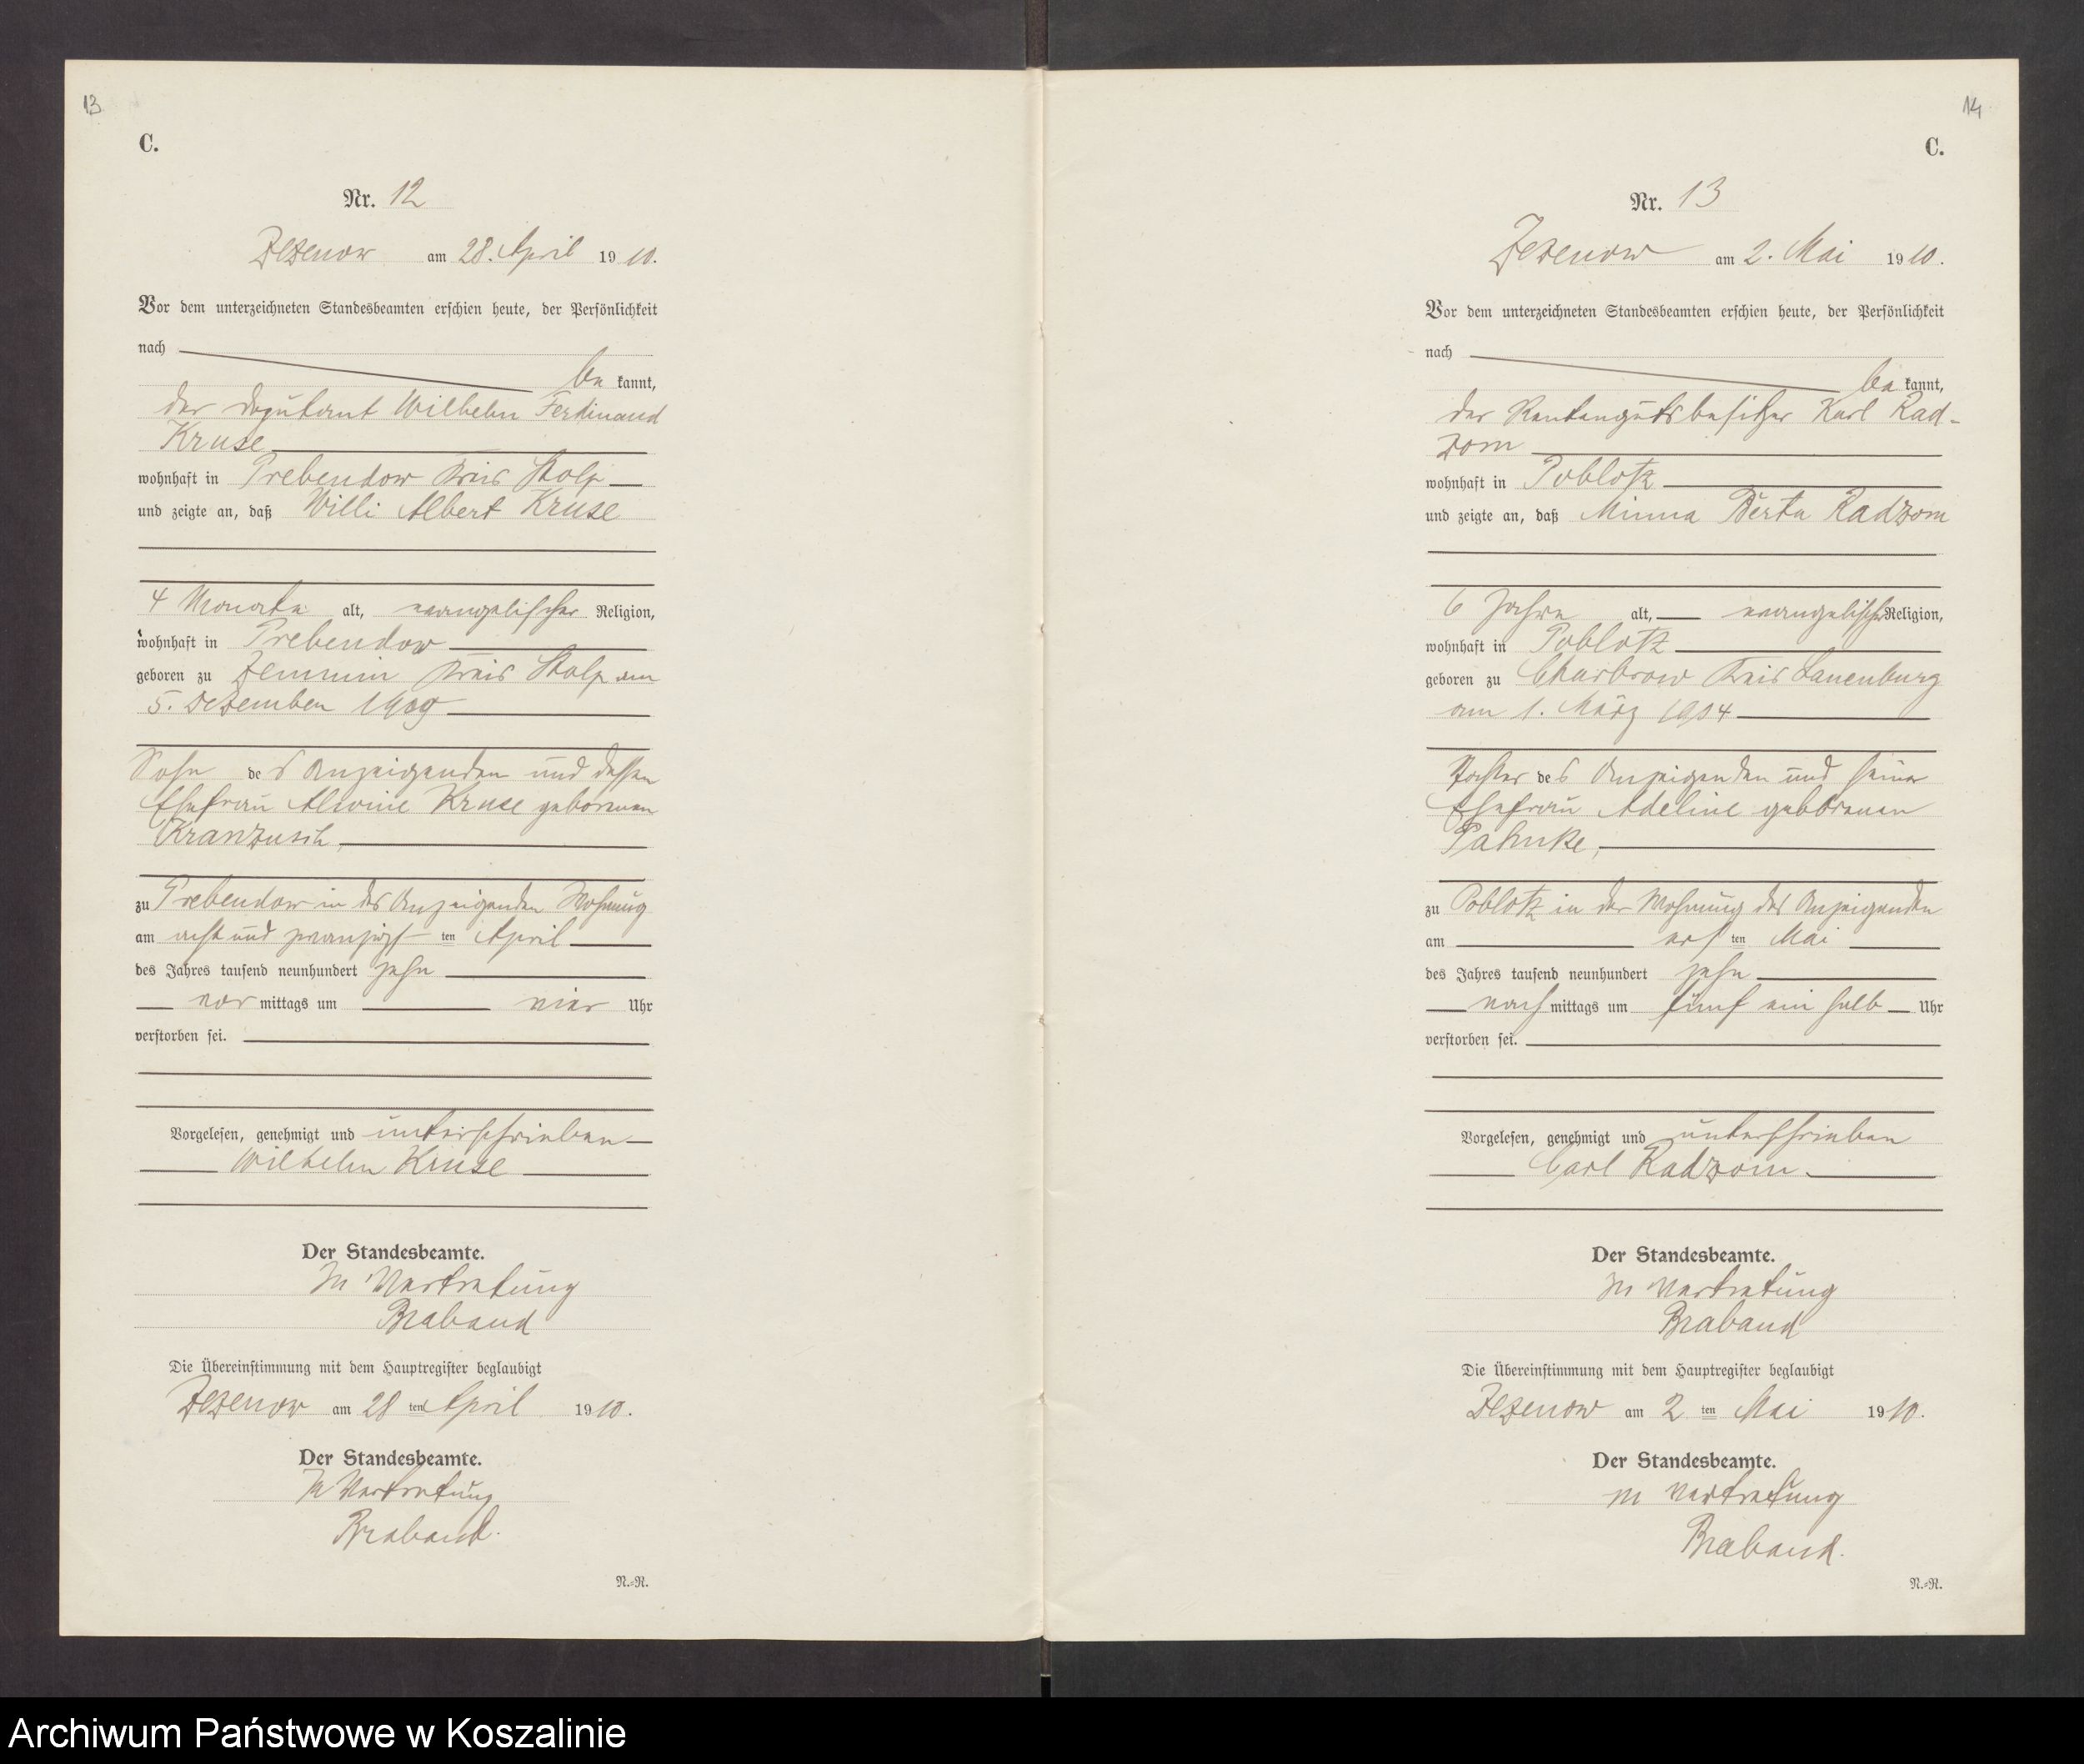 13
C.
Nr. 12
Zezenow am 28. April 1910.
Vor dem unterzeichneten Standesbeamten erschien heute, der Persönlichkeit
nach
be kannt,
der Deputant Wilhelm Ferdinand
Kruse
wohnhaft in Prebendow Kreis Stolp
und zeigte an, daß Willi Albert Kruse
4 Monate alt, evangelischer Religion,
wohnhaft in Prebendow
geboren zu Zemmin Kreis Stolp am
5. Dezember 1909
Sohn des Anzeigenden und dessen
Ehefrau Alwine Kruse geborenen
Kranzusch,
zu Prebendow in des Anzeigenden Wohnung
am acht und zwanzigsten April
des Jahres tausend neunhundert zehn
vor mittags um vier Uhr
verstorben sei.
Vorgelesen, genehmigt und unterschrieben
Wilhelm Kruse
Der Standesbeamte.
In Vertretung
Braband
Die Übereinstimmung mit dem Hauptregister beglaubigt
Zezenow am 28 ten April 1910.
Der Standesbeamte.
In Vertretung
Braband.
N.=R.
14
C.
Nr. 13
Zezenow am 2. Mai 1910.
Vor dem unterzeichneten Standesbeamten erschien heute, der Persönlichkeit
nach
be kannt,
der Rentengutsbesitzer Karl Rad-
zom
wohnhaft in Poblotz
und zeigte an, daß Minna Berta Radzom
6 Jahre alt, evangelischer Religion,
wohnhaft in Poblotz
geboren zu Charbrow Kreis Lauenburg
am 1. März 1904
Tochter des Anzeigenden und seiner
Ehefrau Adeline geborenen
Pahnke,
zu Poblotz in der Wohnung des Anzeigenden
am ersten Mai
des Jahres tausend neunhundert zehn
nach mittags um fünf ein halb Uhr
verstorben sei.
Vorgelesen, genehmigt und unterschrieben
Carl Radzom.
Der Standesbeamte.
In Vertretung
Braband
Die Übereinstimmung mit dem Hauptregister beglaubigt
Zezenow am 2 ten Mai 1910.
Der Standesbeamte.
In Vertretung
Braband.
N.=R.
Archiwum Państwowe w Koszalinie